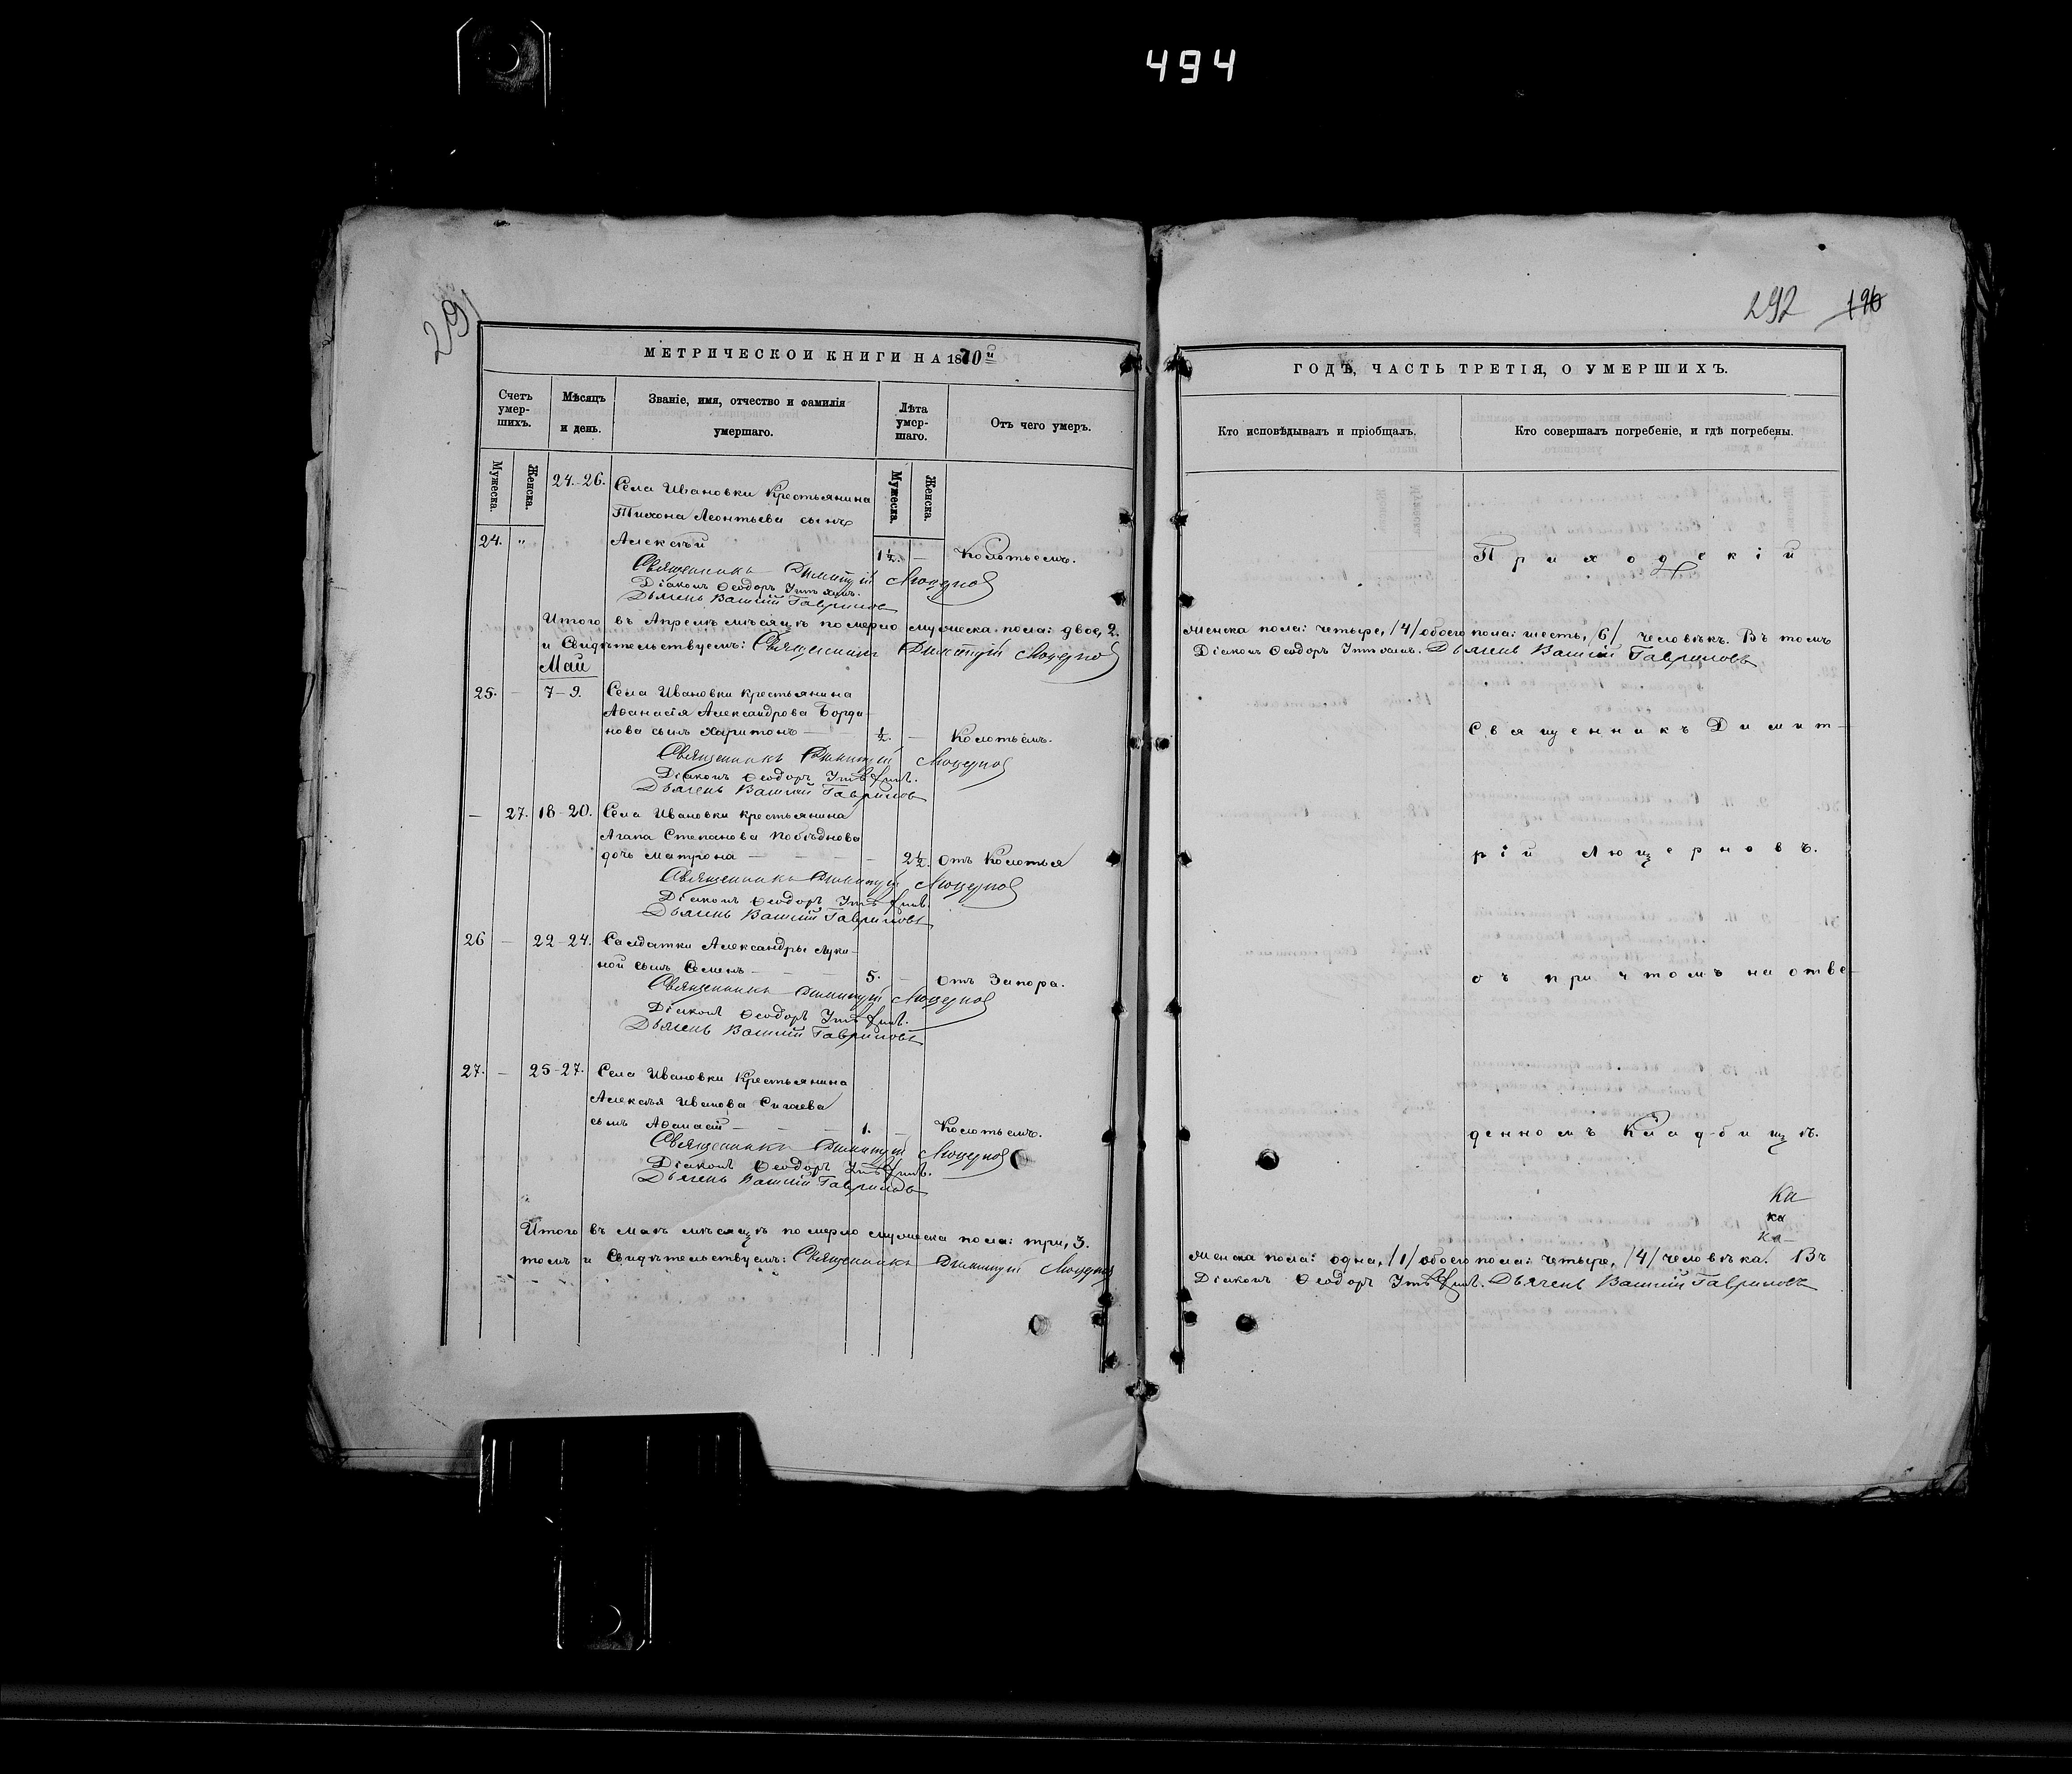 494
291
МЕТРИЧЕСКОЙ КНИГИ НА 1870й
Счетъ умер-шихъ.
Мѣсяцъ и день.
Званіе, имя, отчество и фамилія умершаго.
Лѣта умер-шаго.
Отъ чего умеръ.
Мужеска.
Женска.
Мужеска.
Женска.
24-26. Села Ивановки Крестьянина
Тихона Леонтьева сынъ
24. " Алексѣй 1½. — Колотьемъ.
Священникъ Димитрій Люцерновъ
Діаконъ Ѳеодоръ
Дьячекъ Василій Гавриловъ
Итого въ Апрелѣ мѣсяцѣ померло мужеска пола: двое, 2.
и Свидѣтельствуемъ: Священникъ Димитрій Люцерновъ
Май
25. — 7-9. Села Ивановки крестьянина
Аѳанасія Александрова
сынъ Харитонъ — ½. — Колотьемъ.
Священникъ Димитрій Люцерновъ
Діаконъ Ѳеодоръ
Дьячекъ Василій Гавриловъ
— 27. 18-20. Села Ивановки крестьянина
Агапа Степанова Побѣднова
дочь Матрона — — — — 2½. отъ Колотья
Священникъ Димитрій Люцерновъ
Діаконъ Ѳеодоръ
Дьячекъ Василій Гавриловъ
26 — 22-24. Салдатки Александры Луки-
ной сынъ Семенъ — — — 5. — отъ Запора.
Священникъ Димитрій Люцерновъ
Діаконъ Ѳеодоръ
Дьячекъ Василій Гавриловъ
27. — 25-27. Села Ивановки Крестьянина
Алексѣя Иванова Сигаева
сынъ Аѳанасій — — — 1. — Колотьемъ.
Священникъ Димитрій Люцерновъ
Діаконъ Ѳеодоръ
Дьячекъ Василій Гавриловъ
Итого въ маѣ мѣсяцѣ померло мужеска пола: три, 3.
томъ и Свидѣтельствуемъ: Священникъ Димитрій Люцерновъ
292 196
ГОДЪ, ЧАСТЬ ТРЕТІЯ, О УМЕРШИХЪ.
Кто исповѣдывалъ и пріобщалъ.
Кто совершалъ погребеніе, и гдѣ погребены.
Приходскій
женска пола: четыре, /4/ обоего пола: шесть, /6/ человѣкъ. Въ томъ
Діаконъ Ѳеодоръ Дьячекъ Василій Гавриловъ
Священникъ Димит-
рій Люцерновъ.
съ причтомъ на отве-
денномъ Кладбищѣ.
ка
ка
ка
женска пола: одна, /1/ обоего пола: четыре, /4/ человѣка. Въ
Діаконъ Ѳеодоръ Дьячекъ Василій Гавриловъ